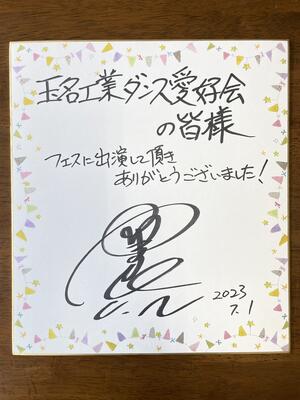 玉名工業ダンス愛好会
の皆様
フェスに出演して頂き
ありがとうございました!
2023
7.1